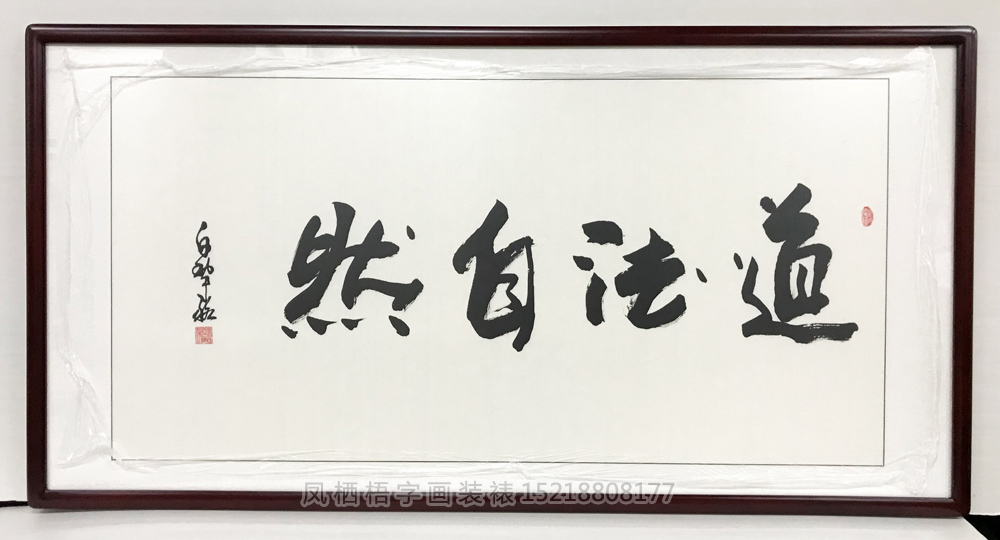 道法自然
凤栖梧字画装裱15218808177